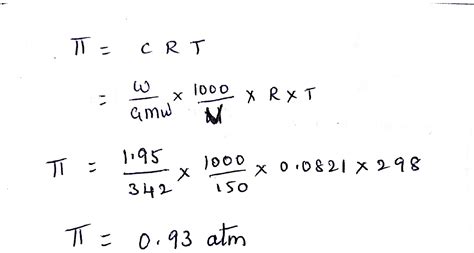 π = C R T
= W/GMW × 1000/V × R × T
π = 1.95/342 × 1000/150 × 0.0821 × 298
π = 0.93 atm